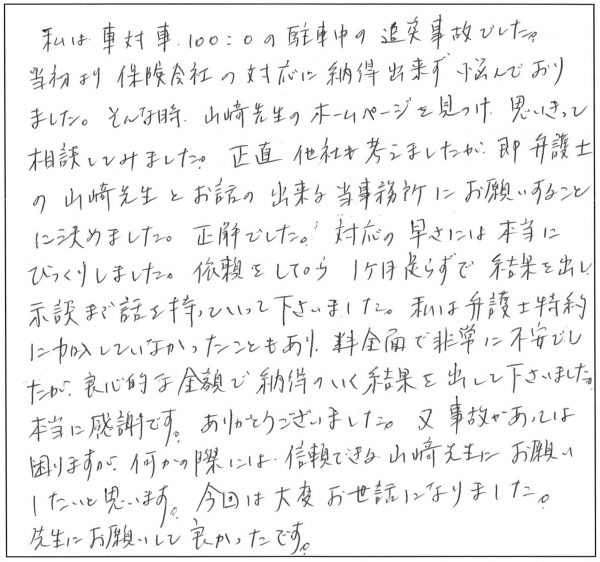 私は 車対車 100:0の駐車中の 追突事故でした。
当初より 保険会社の対応に納得出来ず 悩んでおり
ました。そんな時、山崎先生のホームページを見つけ、思いきって
相談してみました。正直 他社も考えましたが、即 弁護士
の 山崎先生とお話の出来る当事務所にお願いすること
に決めました。正解でした。対応の早さには本当に
びっくりしました。依頼をしてから 1ケ月足らずで 結果を出し
示談まで話を持っていって下さいました。私は弁護士特約
に加入していなかったこともあり、料金面で非常に不安でし
たが、良心的な金額で納得のいく結果を出して下さいました。
本当に感謝です。ありがとうございました。又 事故があっては
困りますが、何かの際には 信頼できる 山崎先生にお願い
したいと思います。今回は大変お世話になりました。
先生にお願いして良かったです。